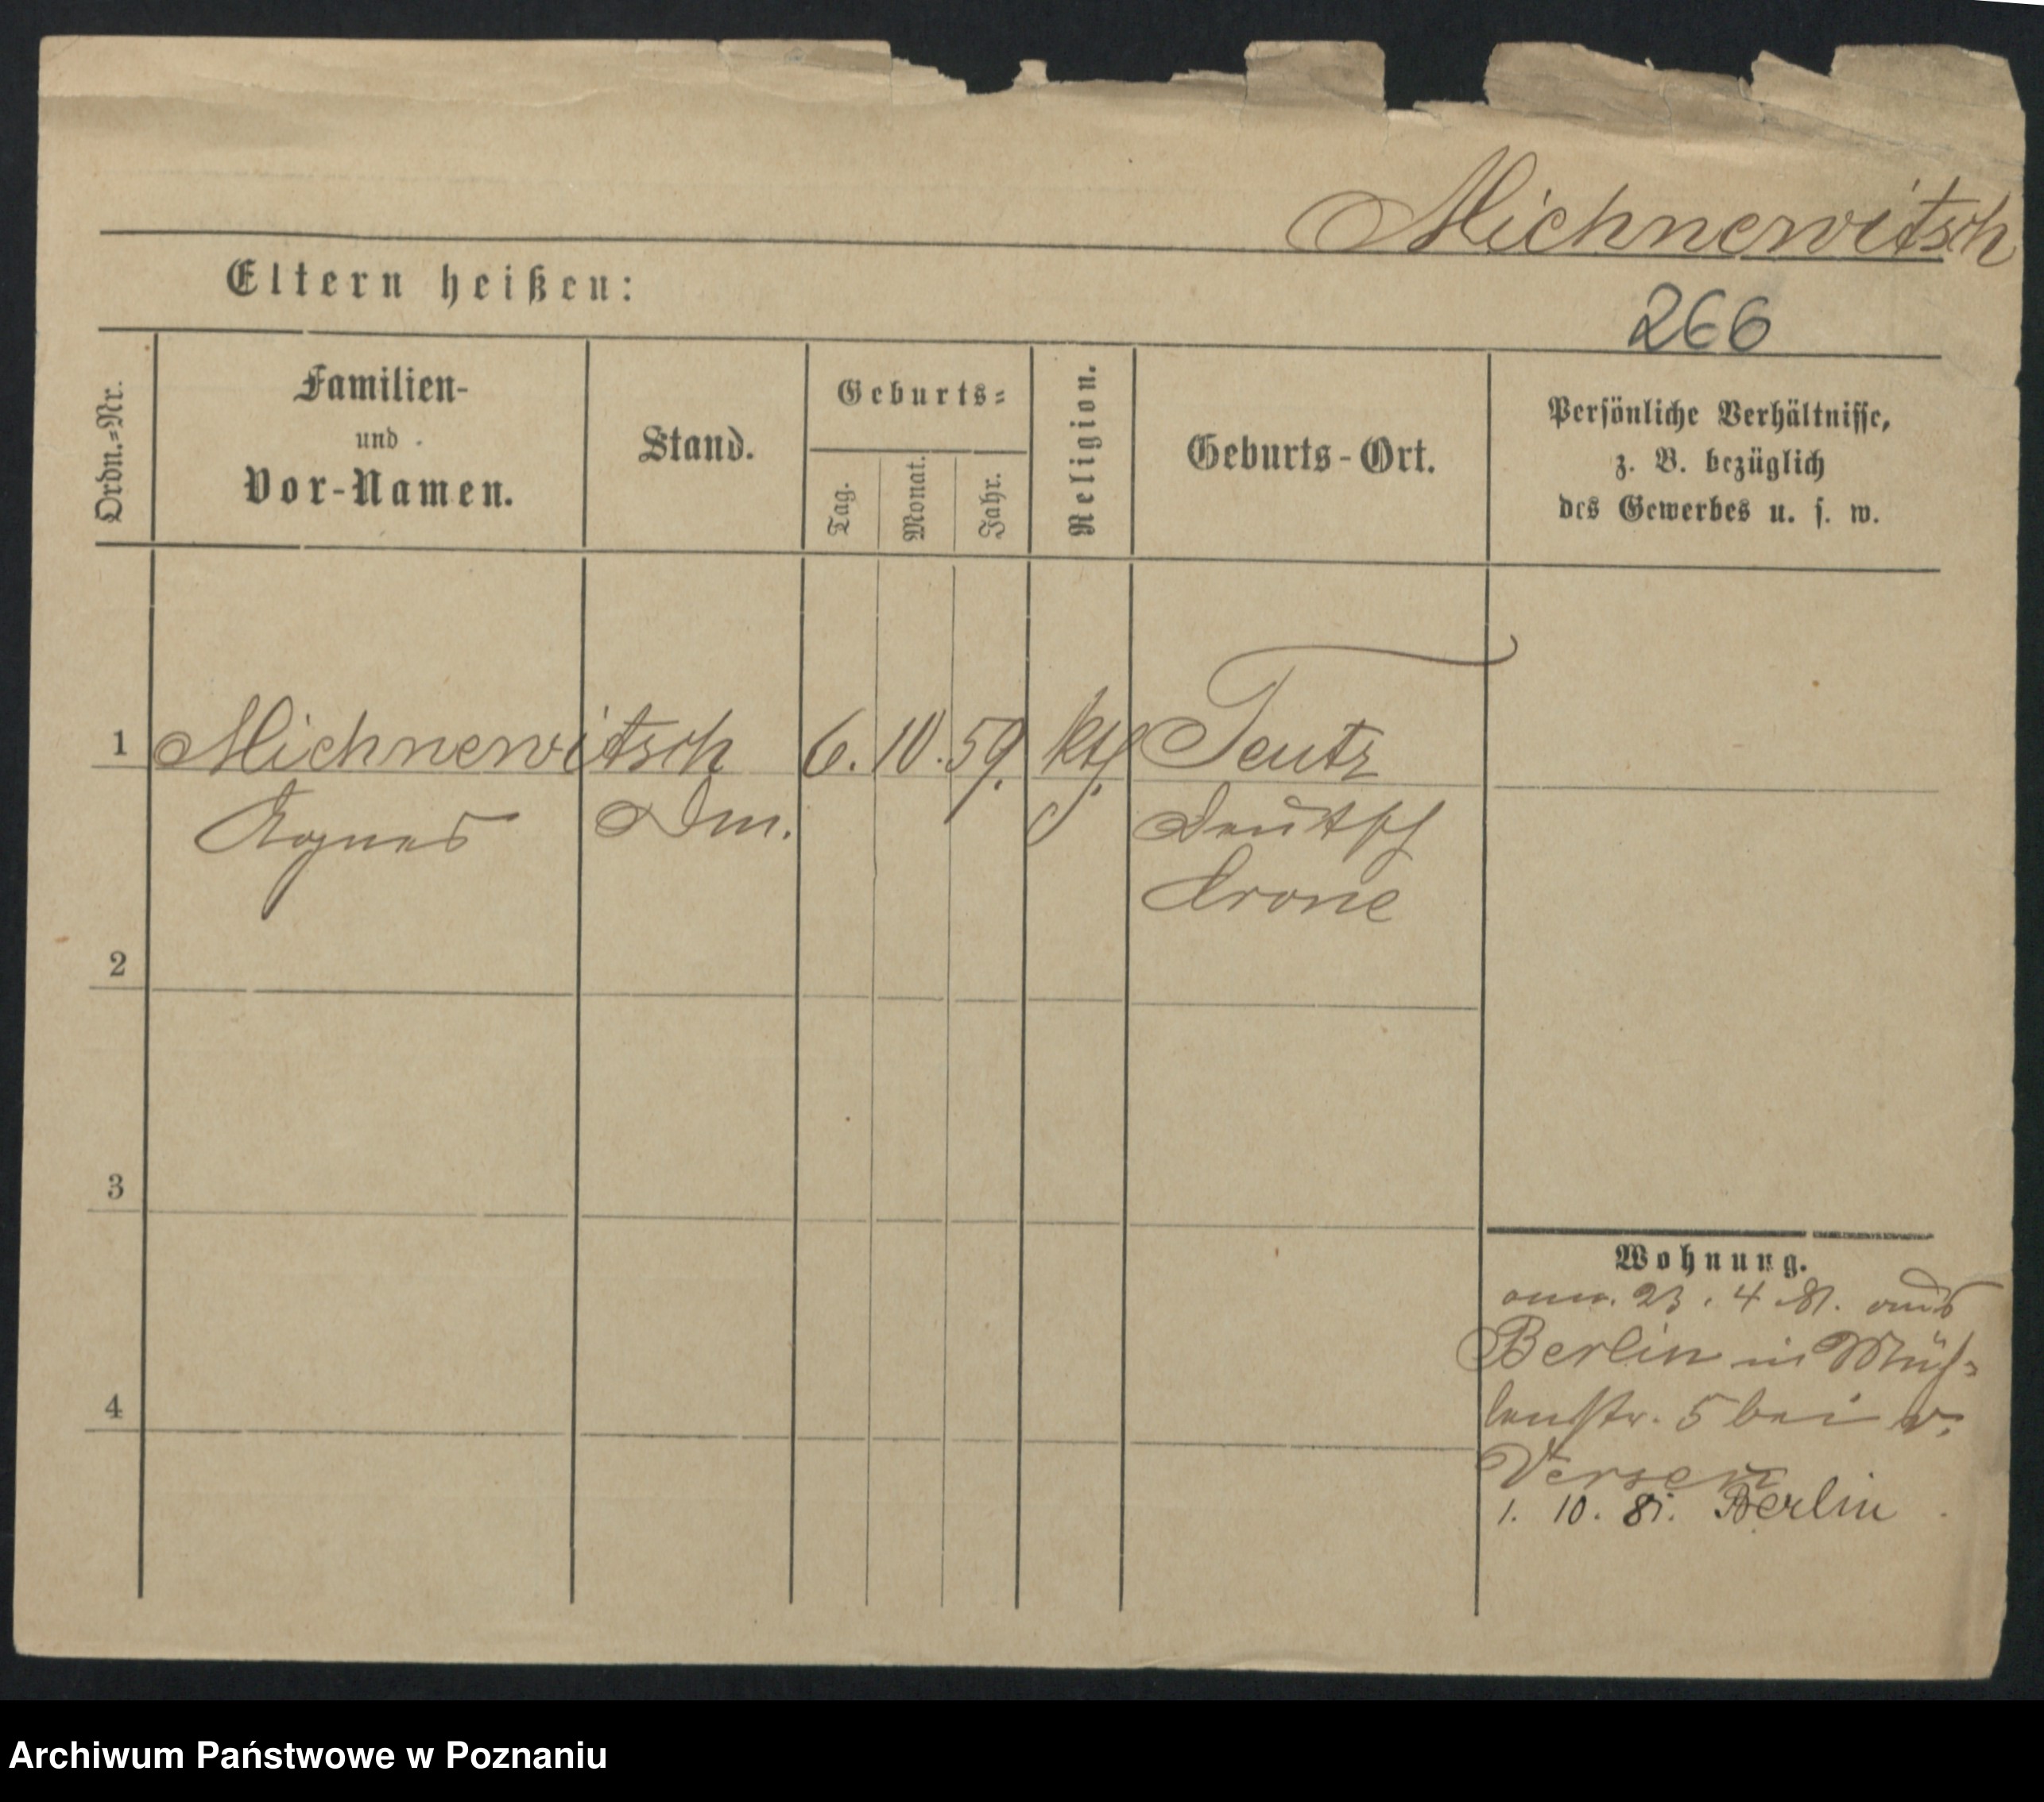 Michnewitsch
Eltern heißen:
266
Ordn.=Nr.
Familien-
und
Vor-Namen.
Stand.
Geburts=
Tag.
Monat.
Jahr.
Religion.
Geburts-Ort.
Persönliche Verhältnisse,
z. B. bezüglich
des Gewerbes u. s. w.
1 Michnewitsch 6. 10. 59. kth. Teutz
Agnes Dm. Deutsch
Crone
2
3
4
Wohnung.
23. 4. 81. aus
Berlin in Müh=
lenstr. 5 bei v.
Versen
1. 10. 81. Berlin
Archiwum Państwowe w Poznaniu